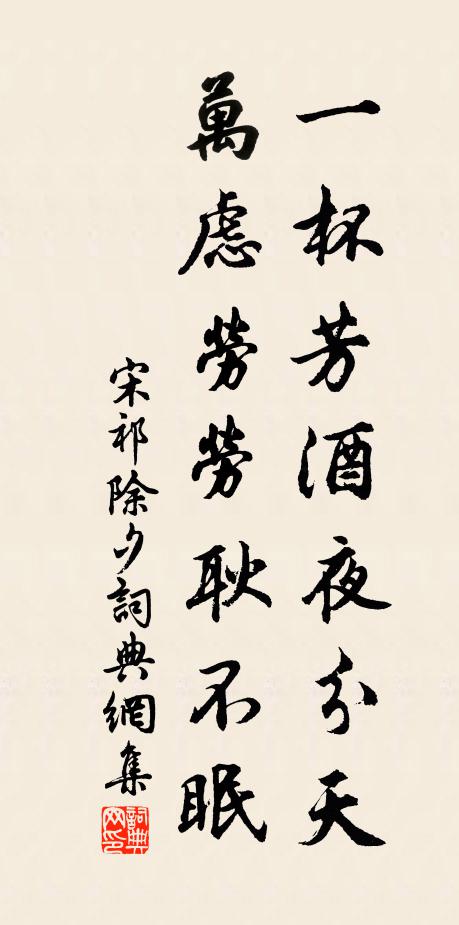 一杯芳酒夜分天
萬慮勞勞耿不眠
宋祁除夕詞典網集
詞典網印